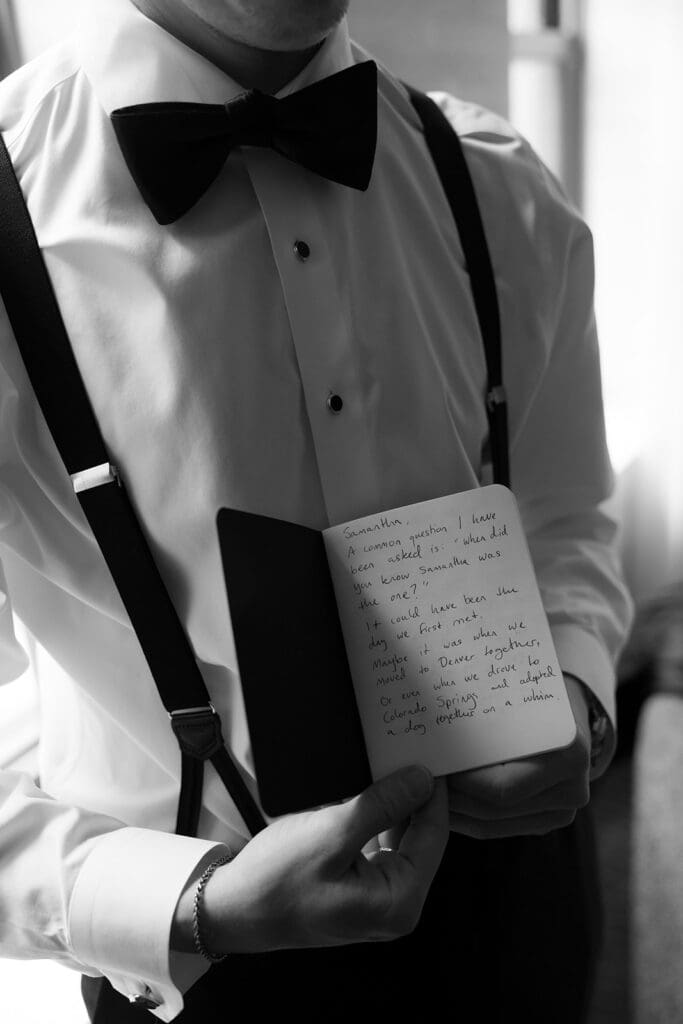 Samantha,
A common question I have
been asked is: "when did
you know Samantha was
the one?"
It could have been the
day we first met.
Maybe it was when we
moved to Denver together,
Or even when we drove to
Colorado Springs and adopted
a dog together on a whim.